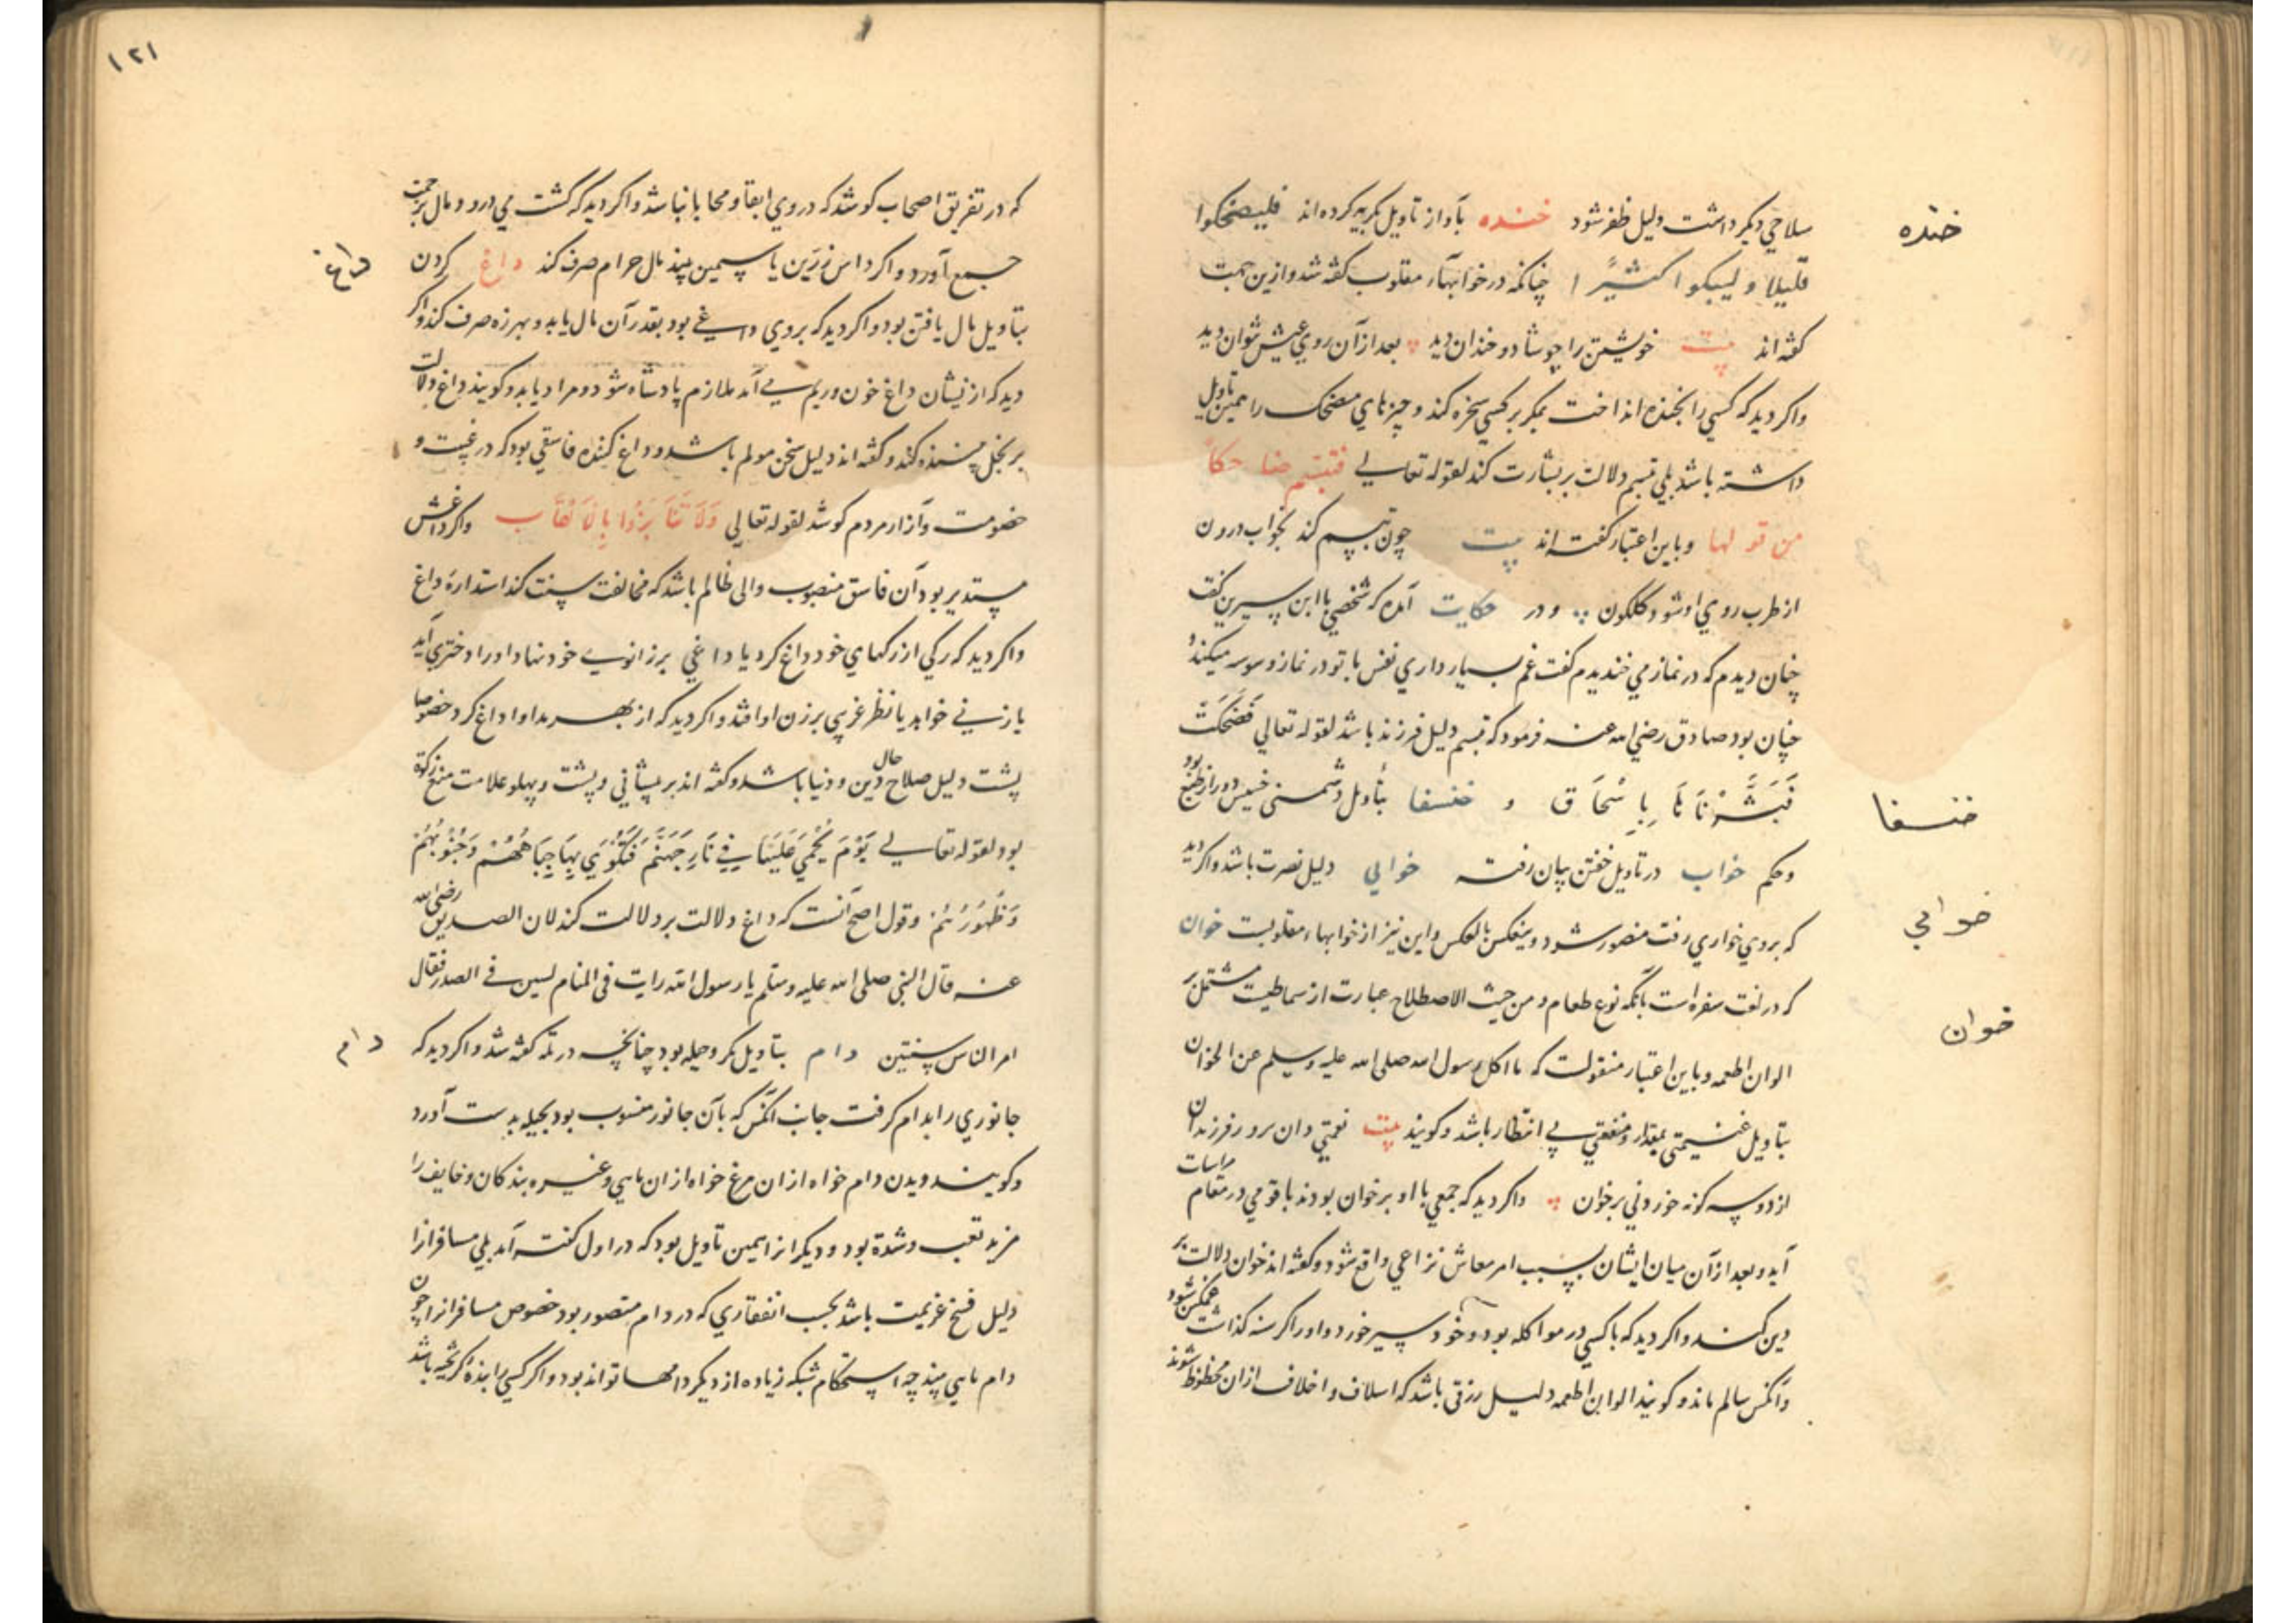 سلاحي ديكر داشت دليل ظفر شود خنده بآواز تاويل بكريه كرده اند فليضحكوا
خنده
قليلا و ليبكوا كثيرًا چنانكه در خوابهاء مقلوب كفته شد و ازين جهت
كفته اند بيت خويشتن را چو شاد و خندان ديد بعد از آن روي عيش نتوان ديد
واكر ديد كه كسي را بخنده انداخت بمكر بر كسي سخره كند و چيزهاي مضحك را همين تاويل
داشته باشد بلي تبسم دلالت بر بشارت كند لقوله تعالي فتبسم ضاحكاً
من قولها و باين اعتبار كفته اند بيت چون تبسم كند بخواب درون
از طرب روي او شود كلكون و در حكايت آمده كه شخصي با ابن سيرين كفت
چنان ديدم كه در نماز مي خنديدم كفت غم بسيار داري نفس با تو در نماز وسوسه ميكند و
چنان بود صادق رضي الله عنه فرمود كه تبسم دليل فرزند باشد لقوله تعالي فَضَحِكَتْ
فَبَشَّرْنَاهَا بِاِسْحَاقَ و خنفسا بتأويل دشمني خسيس دور از طبع بود
خنسفا
و حكم خواب در تاويل خفتن بيان رفته خوابي دليل نصرت باشد واكر ديد
خوابي
كه بروي خواري رفت منصور شود و ينعكس بالعكس و اين نيز از خوابهاء مقلوبست خوان
كه در لغت سفره است بانكه نوع طعام و من حيث الاصطلاح عبارت از سماطيست مشتمل بر
خوان
الوان اطعمه و باين اعتبار منقولست كه ما اكل رسول الله صلى الله عليه وسلم عن الخوان
بتاويل غنيمتي بمقدار و منفعتي بي انتظار باشد و كويند بيت نعمتي دان سرور فرزندان
از دو سه كونه خوردني بر خوان واكر ديد كه جمعي با او بر خوان بودند با قومي در مقام مراسات
آيد و بعد از آن ميان ايشان بسبب امر معاش نزاعي واقع شود و كفته اند خوان دلالت بر
دين كند واكر ديد كه با كسي در مواكله بود و خود سير خورد و او را كرسنه كذاشت غمكين شود
و آنكس سالم ماند و كويند الوان اطعمه دليل رزقي باشد كه اسلاف و اخلاف از آن محظوظ شوند
١٢١
كه در تفريق اصحاب كوشد كه در وي ابقا و محابا نباشد واكر ديد كه كشت مي درود مال بزحمت
جمع آورد واكر داس زرين يا سيمين بيند مال حرام صرف كند داغ كردن
داغ
بتاويل مال يافتن بود واكر ديد كه بروي داغي بود بقدر آن مال يابد و بهرزه صرف كند واكر
ديد كه از نشان داغ خون و ريم مي آمد ملازم پادشاه شود و مراد يابد و كويند داغ دلالت
بر بخل كند و كفته اند دليل سخن مولم باشد و داغ كننده فاسقي بود كه در غيبت و
خصومت و آزار مردم كوشد لقوله تعالي وَلَا تَنَابَزُوا بِالْاَلْقَاب واكر داغش
مستدير بود آن فاسق منصوب والي ظالم باشد كه مخالفت سنت كند استداره داغ
واكر ديد كه ركي از ركهاي خود داغ كرد يا داغي بر زانوي خود نهاد او را دختري آيد
يا زني خواهد يا نظر غريبي بر زن او افتد واكر ديد كه از بهر مداوا داغ كرد خصوصا
پشت دليل صلاح حال دين و دنيا باشد و كفته اند بر پيشاني و پشت و پهلو علامت منع زكوة
بود لقوله تعالي يَوْمَ يُحْمَي عَلَيْهَا فِي نَارِ جَهَنَّمَ فَتُكْوَي بِهَا جِبَاهُهُمْ وَجُنُوبُهُمْ
وَظُهُورُهُمْ و قول اصح آنست كه داغ دلالت بر دلالت كند لان الصديق رضي الله
عنه قال النبي صلى الله عليه وسلم يا رسول الله رايت في المنام كيين في الصدر فقال
امر الناس سنتين دام بتاويل مكر و حيله بود چنانچه در تله كفته شد واكر ديد كه
دام
جانوري را بدام كرفت جانب آنكس كه بآن جانور منسوب بود بحيله بدست آورد
و كويند ديدن دام خواه از ان مرغ خواه از ان ماهي و غيره بندكان و خايف را
مزيد تعب و شدة بود و ديكرانرا همين تاويل بود كه در اول كفته آمد بلي مسافرانرا
دليل فسخ عزيمت باشد بحسب انعقادي كه در دام متصور بود خصوص مسافرانرا چون
دام ماهي بيند چه استحكام شبكه زياده از ديكر دامها تواند بود واكر كسي را بنده كريخته باشد